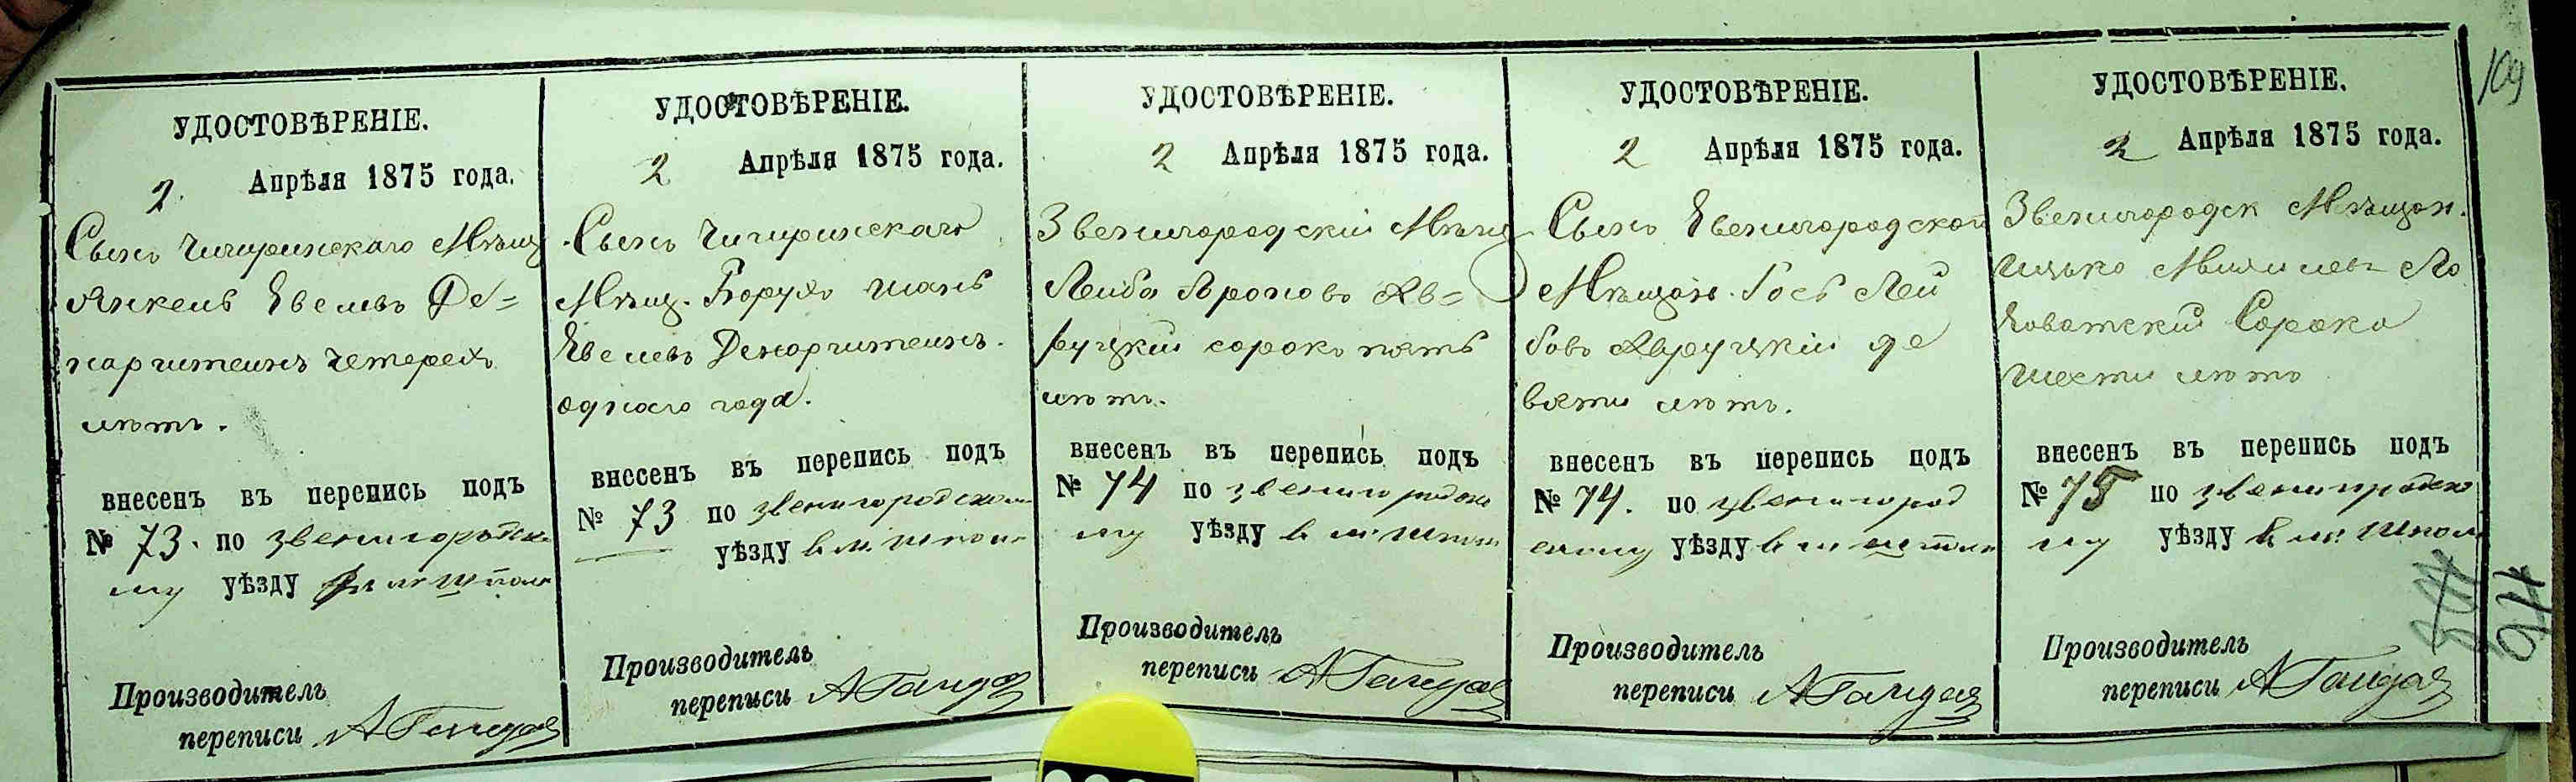 109
УДОСТОВѢРЕНІЕ.
2. Апрѣля 1875 года.
Сынъ Чигиринскаго Мѣщ
Янкель Евелевъ Де=
наритеинъ четерехъ
лѣтъ.
внесенъ въ перепись подъ
№ 73. по звенигородско
му уѣзду в м Шполе
Производитель
переписи
УДОСТОВѢРЕНІЕ.
2 Апрѣля 1875 года.
Сынъ Чигиринскаго
Мѣщ. Борухъ
Евелевъ
одного года.
внесенъ въ перепись подъ
№ 73 по звенигородском
уѣзду в м. Шполе
Производитель
переписи
УДОСТОВѢРЕНІЕ.
2 Апрѣля 1875 года.
Звенигородскій Мѣщ
Лейба Ароновъ Ав=
руцкій сорока пять
лѣтъ.
внесенъ въ перепись подъ
№ 74 по звенигородско
му уѣзду в м Шполе
Производитель
переписи
УДОСТОВѢРЕНІЕ.
2 Апрѣля 1875 года.
Сынъ Звенигородской
Мѣщан. Гось Лей
бовъ Авруцкій де
вяти лѣтъ.
внесенъ въ перепись подъ
№ 74. по звенигород
скому уѣзду в м Шполе
Производитель
переписи
УДОСТОВѢРЕНІЕ.
2 Апрѣля 1875 года.
Звенигородск Мѣщан.
Ицько Ло
коватскій Сорока
шести лѣтъ
внесенъ въ перепись подъ
№ 75 по звенигородско
му уѣзду в м Шполе
Производитель
переписи